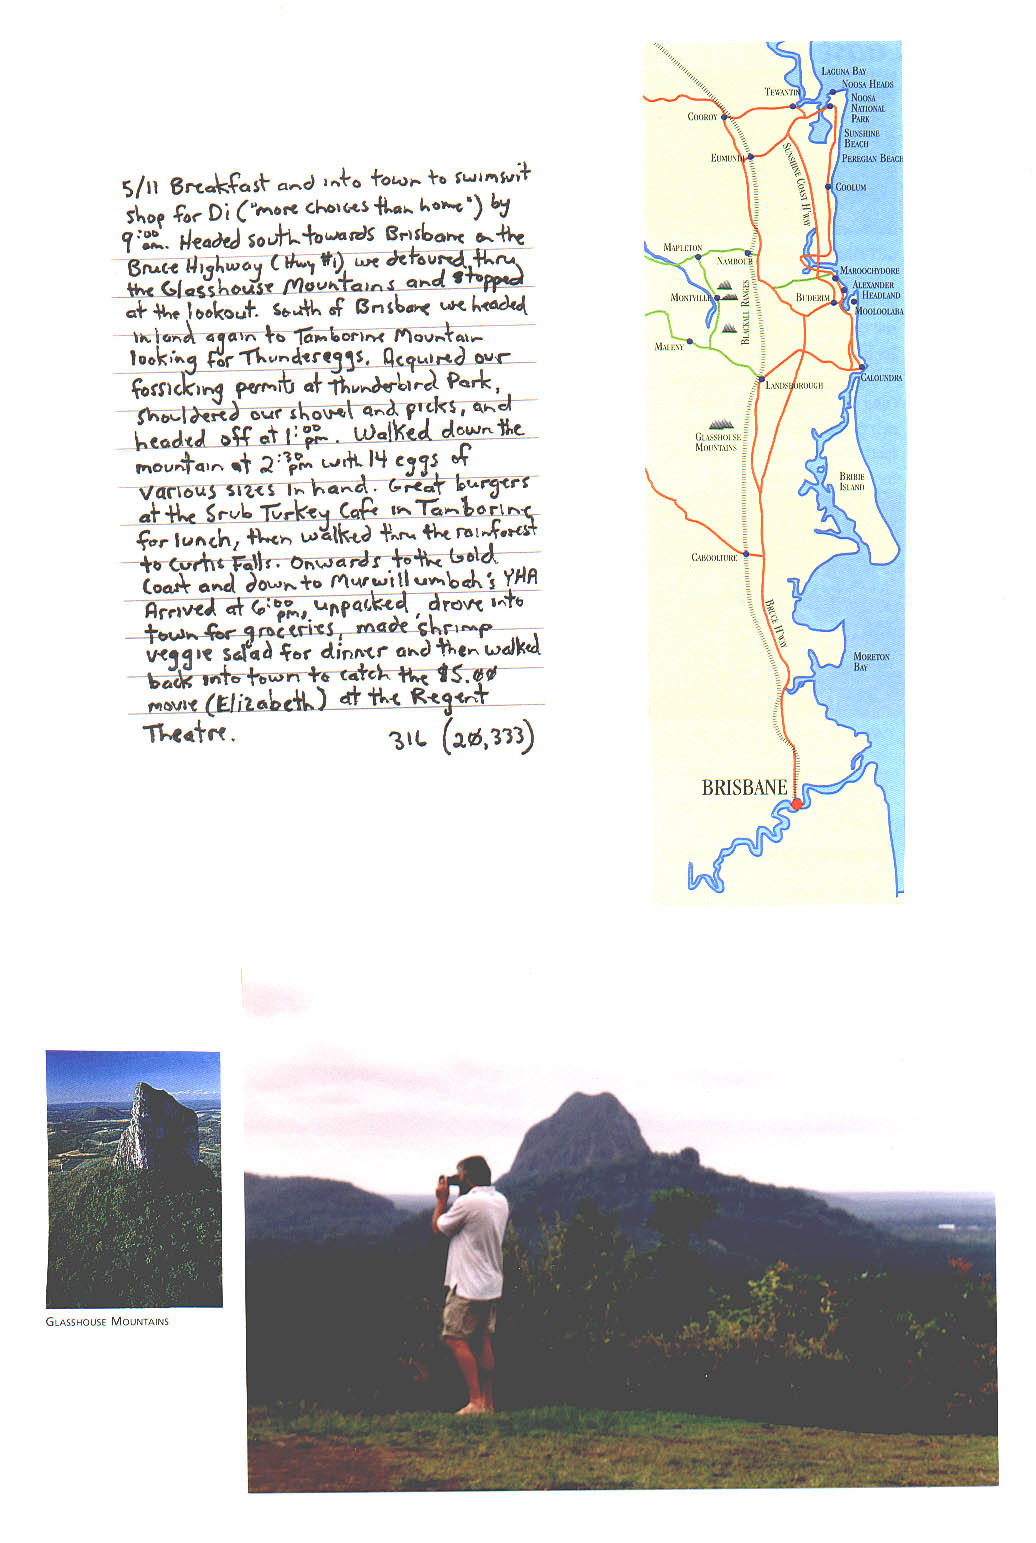 5/11 Breakfast and into town to swimsuit
shop for Di ("more choices than home") by
9:00 am. Headed south towards Brisbane on the
Bruce Highway (Hwy #1) we detoured thru
the Glasshouse Mountains and stopped
at the lookout. South of Brisbane we headed
inland again to Tamborine Mountain
looking for Thundereggs. Acquired our
fossicking permits at Thunderbird Park,
shouldered our shovel and picks, and
headed off at 1:00 pm. Walked down the
mountain at 2:30 pm with 14 eggs of
various sizes in hand. Great burgers
at the Srub Turkey Cafe in Tamborine
for lunch, then walked thru the rainforest
to Curtis Falls. Onwards to the Gold
Coast and down to Murwillumbah's YHA
Arrived at 6:00 pm, unpacked, drove into
town for groceries, made shrimp
veggie salad for dinner and then walked
back into town to catch the $5.00
movie (Elizabeth) at the Regent
Theatre. 316 (20,333)
LAGUNA BAY
NOOSA HEADS
TEWANTIN
NOOSA
NATIONAL
PARK
COOROY
SUNSHINE
BEACH
EUMUNDI
PEREGIAN BEACH
SUNSHINE COAST H'WAY
COOLUM
MAPLETON
NAMBOUR
MAROOCHYDORE
ALEXANDER
HEADLAND
MONTVILLE
BUDERIM
MOOLOOLABA
BLACKALL RANGES
MALENY
CALOUNDRA
LANDSBOROUGH
GLASSHOUSE
MOUNTAINS
BRIBIE
ISLAND
CABOOLTURE
BRUCE H'WAY
MORETON
BAY
BRISBANE
GLASSHOUSE MOUNTAINS